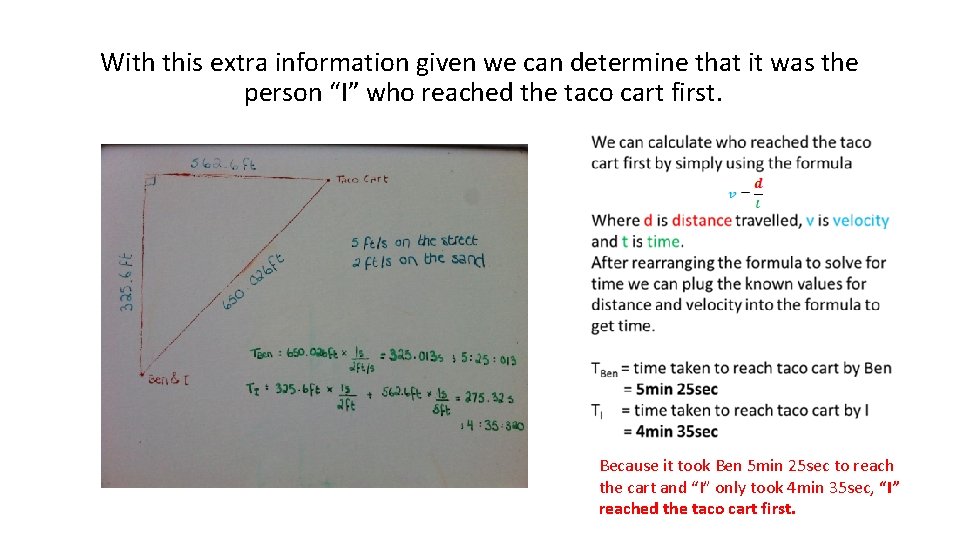 With this extra information given we can determine that it was the
person “I” who reached the taco cart first.
562.6 ft
Taco Cart
325.6 ft
650.026 ft
5 ft/s on the street
2 ft/s on the sand
Ben & I
TBen : 650.026ft × 1s/2ft/s = 325.013s ; 5:25:013
TI : 325.6ft × 1s/2ft + 562.6ft × 1s/5ft = 275.32s
; 4:35:320
We can calculate who reached the taco
cart first by simply using the formula
v = d/t
Where d is distance travelled, v is velocity
and t is time.
After rearranging the formula to solve for
time we can plug the known values for
distance and velocity into the formula to
get time.
TBen = time taken to reach taco cart by Ben
= 5min 25sec
TI = time taken to reach taco cart by I
= 4min 35sec
Because it took Ben 5min 25sec to reach
the cart and “I” only took 4min 35sec, “I”
reached the taco cart first.